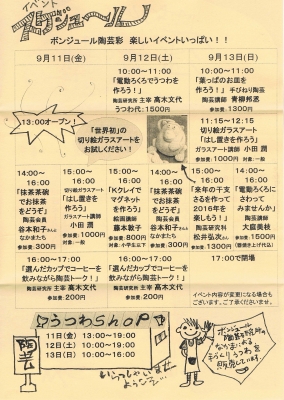 イベント
ボンジュール
ボンジュール陶芸彩 楽しいイベントいっぱい!!
9月11日(金)
9月12日(土)
9月13日(日)
13:00オープン!
10:00〜11:00
「電動ろくろでうつわを
作ろう!」
陶芸研究所 主宰 高木文代
うつわ代:1500円
10:00〜11:00
「葉っぱのお皿を
作ろう!」 手びねり陶芸
陶芸講師 青柳邦恵
参加費:1300円
「世界初」の
切り絵ガラスアートを
お試しください!
11:15〜12:15
切り絵ガラスアート
「はし置きを作ろう」
ガラスアート講師 小田 潤
参加費:1000円 対象:一般
14:00〜
16:00
「抹茶茶碗
でお抹茶
をどうぞ」
陶芸会員
谷本和子さんと
なかまたち
参加費:300円
15:00〜16:00
切り絵ガラスアート
「はし置き
を作ろう」
ガラスアート講師
小田 潤
参加費:1000円
対象:一般
15:00〜16:00
「Kクレイで
マグネット
を作ろう」
絵画講師
藤本敦子
参加費:800円
対象:小学生以下
14:00〜
16:00
「抹茶茶碗
でお抹茶
をどうぞ」
陶芸会員
谷本和子さんと
なかまたち
参加費:300円
14:00〜
16:00
「来年の干支
さるを作って
2016年を
楽もう!」
陶芸研究所
松井弘次さん
参加費:1500円
14:00〜
16:00
「電動ろくろに
さわって
みませんか」
大庭貴枝
参加費:1500円
16:00〜17:00
「選んだカップでコーヒーを
飲みながら陶芸トーク!」
陶芸研究所 主宰 高木文代
参加費:200円
16:00〜17:00
「選んだカップでコーヒーを
飲みながら陶芸トーク!」
陶芸研究所 主宰 高木文代
参加費:200円
17:00で閉場
イベント内容が変更になる場合も
ございます。ご了承くださいませ。
うつわShoP
陶芸
11日(金) 13:00〜19:00
12日(土) 10:00〜19:00
13日(日) 10:00〜16:00
いらっしゃいませ
ようこそ…
ボンジュール
陶芸研究所の
なかまによる
手づくりうつわを
販売しています。